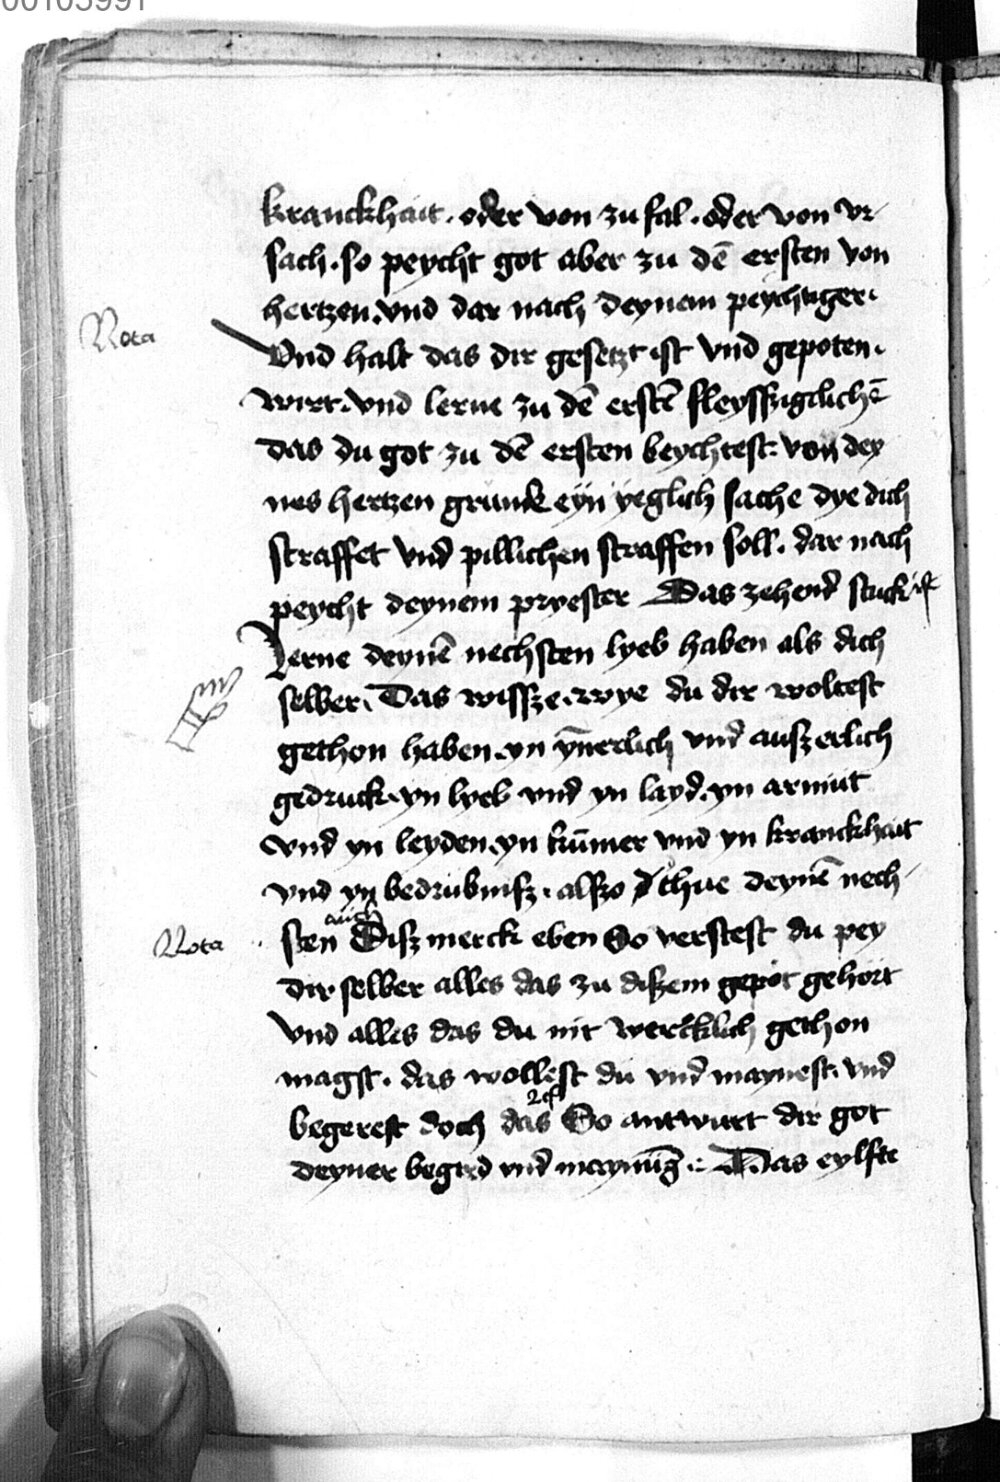 00103991
kranckhait. oder von zu fal. oder von vr-
sach. so peycht got aber zu dē ersten von
hertzen. vnd dar nach deynem peychtiger.
Nota
Vnd halt das dir gesetzt ist vnd gepoten.
wirt. vnd lerne zu dē erstē fleysszigclichē
das du got zu dē ersten beychtest. von dey
nes hertzen grunk eyn yeglich sache dye dich
straffet vnd pillichen straffen soll. dar nach
peycht deynem pryester Das zehend stuck ist
Lerne deynē nechsten lyeb haben als dich
selber. Das wissze. wye du dir woltest
gethon haben. yn ynnerlich vnd ausz erlich
gedruck. yn lyeb vnd yn layd. yn armut
vnd yn leyden. yn kūmer vnd yn kranckhait
vnd yn bedrubnisz. alszo thue deynē nech-
auch
Nota
sten Disz merck eben So verstest du pey
dir selber alles das zu diszem gepot gehört
vnd alles das du nit wercklich gethon
magst. das wollest du vnd maynest. vnd
begerest doch das So antwurt dir got
deyner begird vnd maynūg. Das eylfte